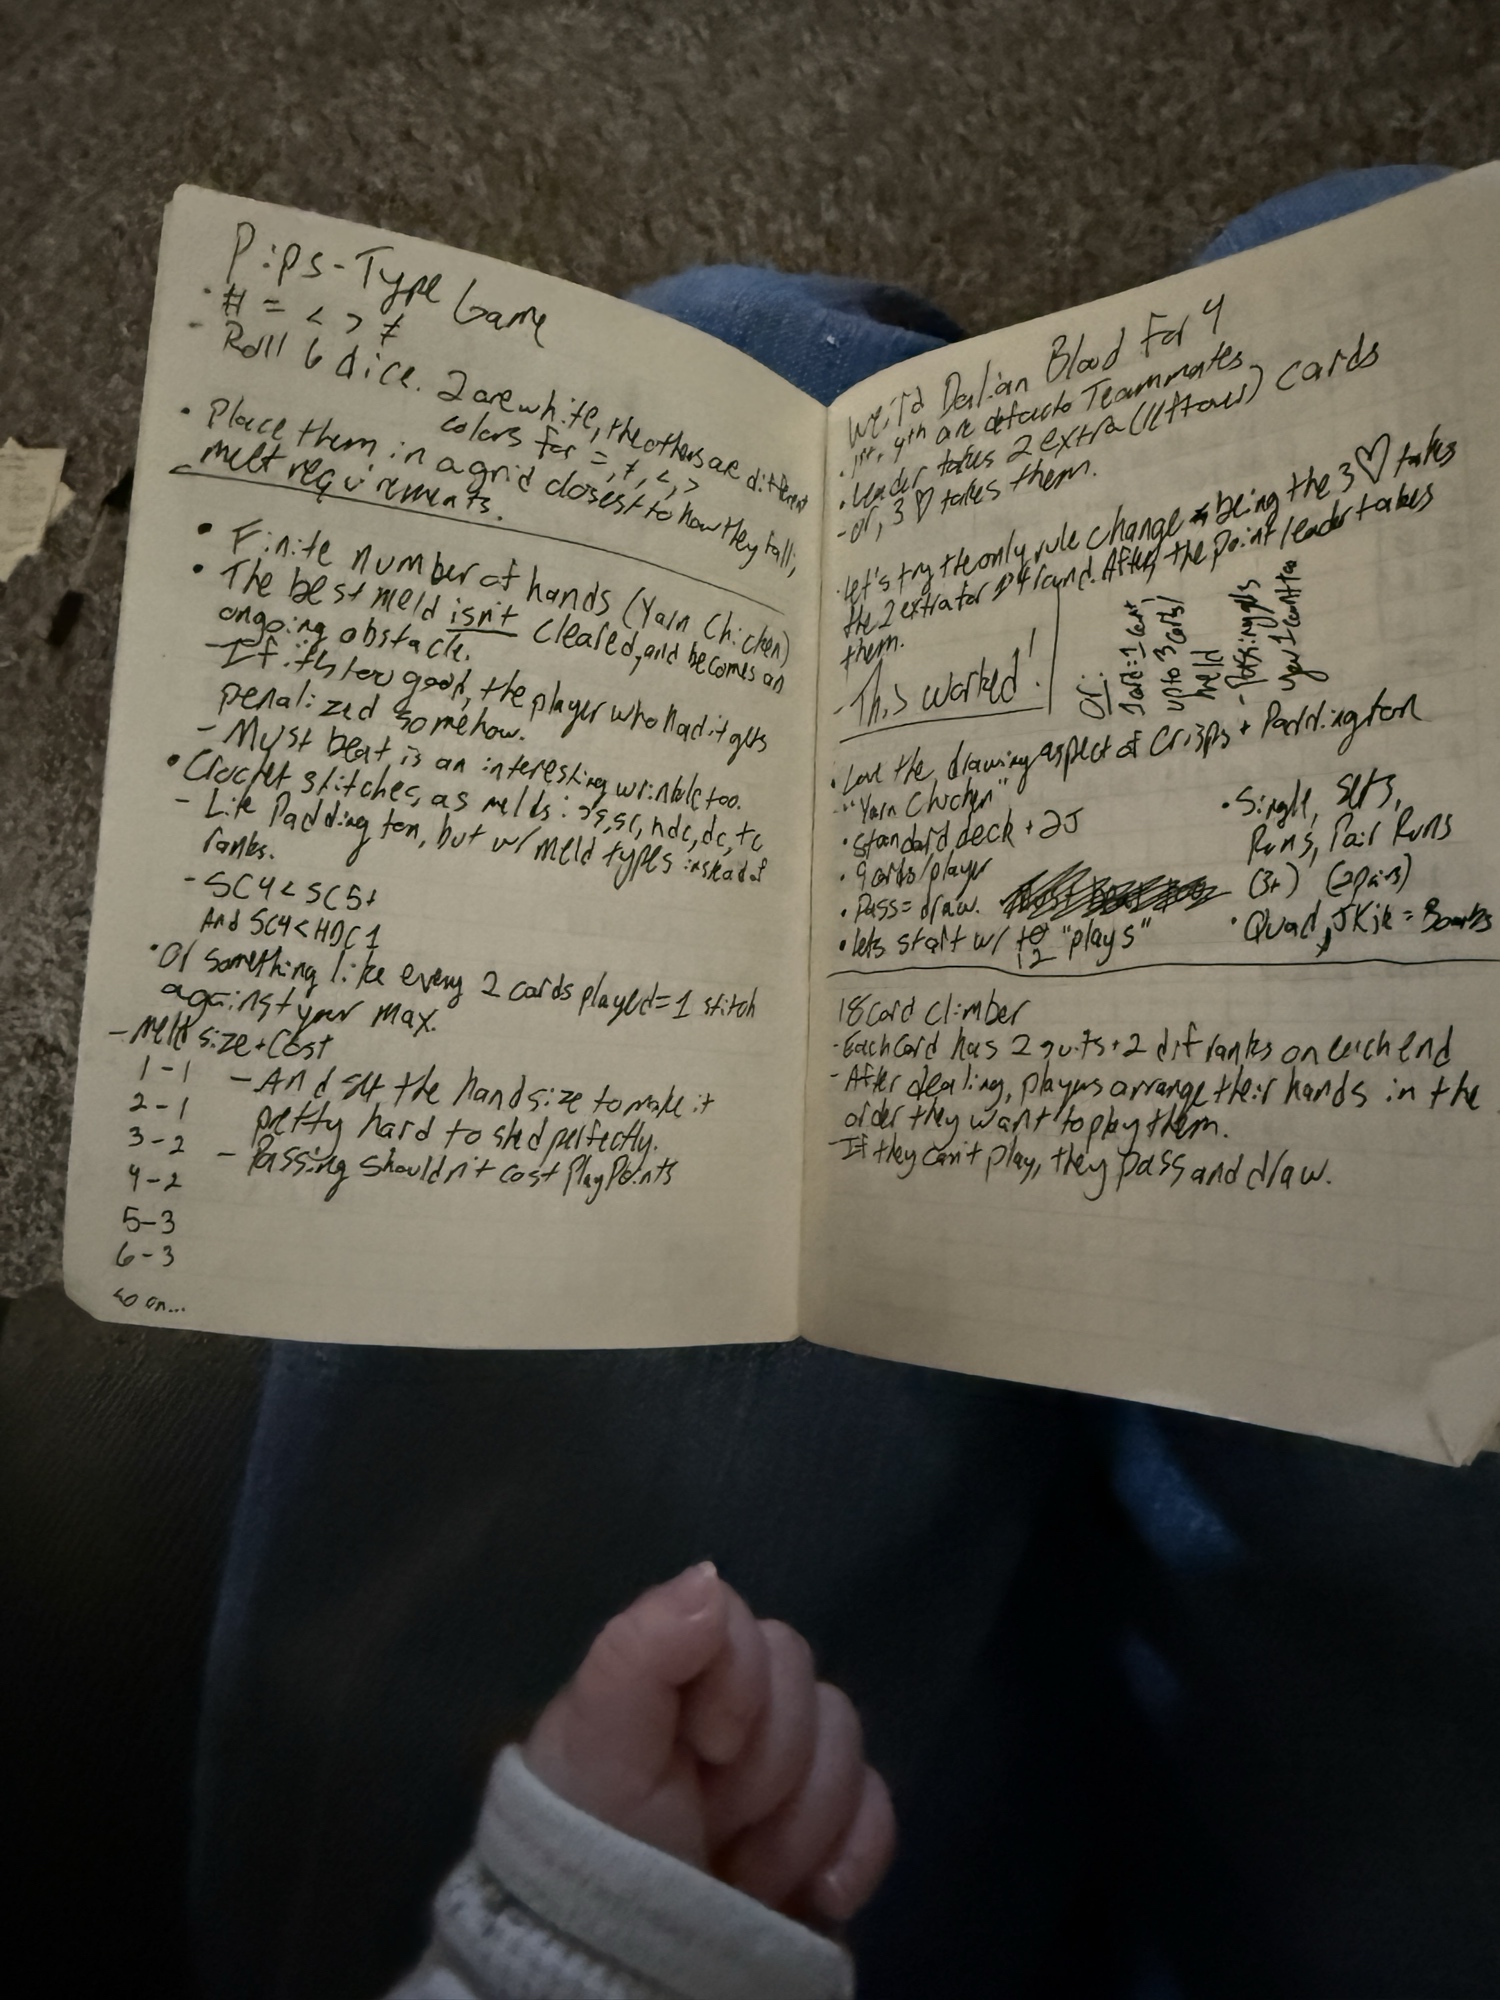 Pips-Type Game
· # = < > ≠
- Roll 6 dice. 2 are white, the others are different
colors for =, ≠, <, >
· Place them in a grid closest to how they fall,
melt requirements.
· Finite number of hands (Yarn Chicken)
· The best meld isn't cleared, and becomes an
ongoing obstacle.
- If it's too good, the player who had it gets
penalized somehow.
- Must beat is an interesting wrinkle too.
· Crochet stitches, as melds: ss, sc, hdc, dc, tc
- Like Paddington, but w/ meld types instead of
ranks.
- SC4 < SC5+
And SC4 < HDC1
· Or something like every 2 cards played = 1 stitch
against your max.
- Meld size + Cost
1-1
2-1
3-2
4-2
5-3
6-3
so on...
- And set the handsize to make it
pretty hard to shed perfectly.
- Passing shouldn't cost Play Points
Weird Dalian Blood For 4
· 1st, 4th are defacto Teammates
· Leader takes 2 extra (leftover) cards
- or, 3♡ takes them.
· Let's try the only rule change being the 3♡ takes
the 2 extra for 1st round. After the point leader takes
them.
- This worked!
Or:
1 card = 1 cont
up to 3 cards
held
- Passing gets
you 1 counter
· Love the drawing aspect of Crisps + Paddington
- "Yarn Chicken"
· Standard deck + 2J
· 9 cards/player
· Pass = draw.
· Lets start w/ 10 "plays"
12
· Single, Sets,
Runs, Pair Runs
(3+) (2 pairs)
· Quad, JKjk = Bombs
18 Card Climber
- Each Card has 2 suits + 2 dif ranks on each end
- After dealing, players arrange their hands in the
order they want to play them.
- If they can't play, they pass and draw.